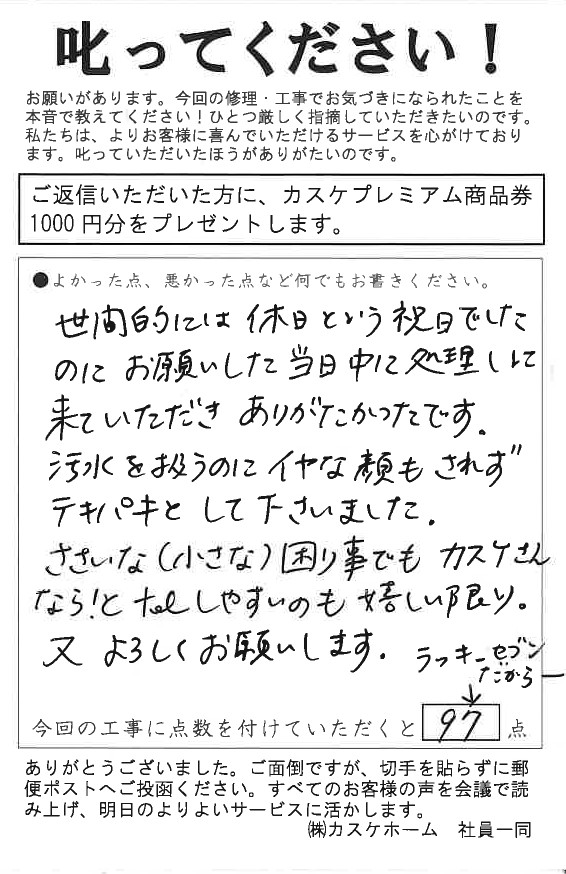 叱ってください！
お願いがあります。今回の修理・工事でお気づきになられたことを
本音で教えてください！ひとつ厳しく指摘していただきたいのです。
私たちは、よりお客様に喜んでいただけるサービスを心がけており
ます。叱っていただいたほうがありがたいのです。
ご返信いただいた方に、カスケプレミアム商品券
1000円分をプレゼントします。
●よかった点、悪かった点など何でもお書きください。
世間的には休日という祝日でした
のに お願いした当日中に処理しに
来ていただき ありがたかったです。
汚水を扱うのにイヤな顔もされず
テキパキと して下さいました。
ささいな(小さな)困り事でも カスケさん
なら!と telしやすいのも 嬉しい限り。
又 よろしくお願いします。
ラッキーセブン
だからー
今回の工事に点数を付けていただくと 97 点
ありがとうございました。ご面倒ですが、切手を貼らずに郵
便ポストへご投函ください。すべてのお客様の声を会議で読
み上げ、明日のよりよいサービスに活かします。
㈱カスケホーム　社員一同